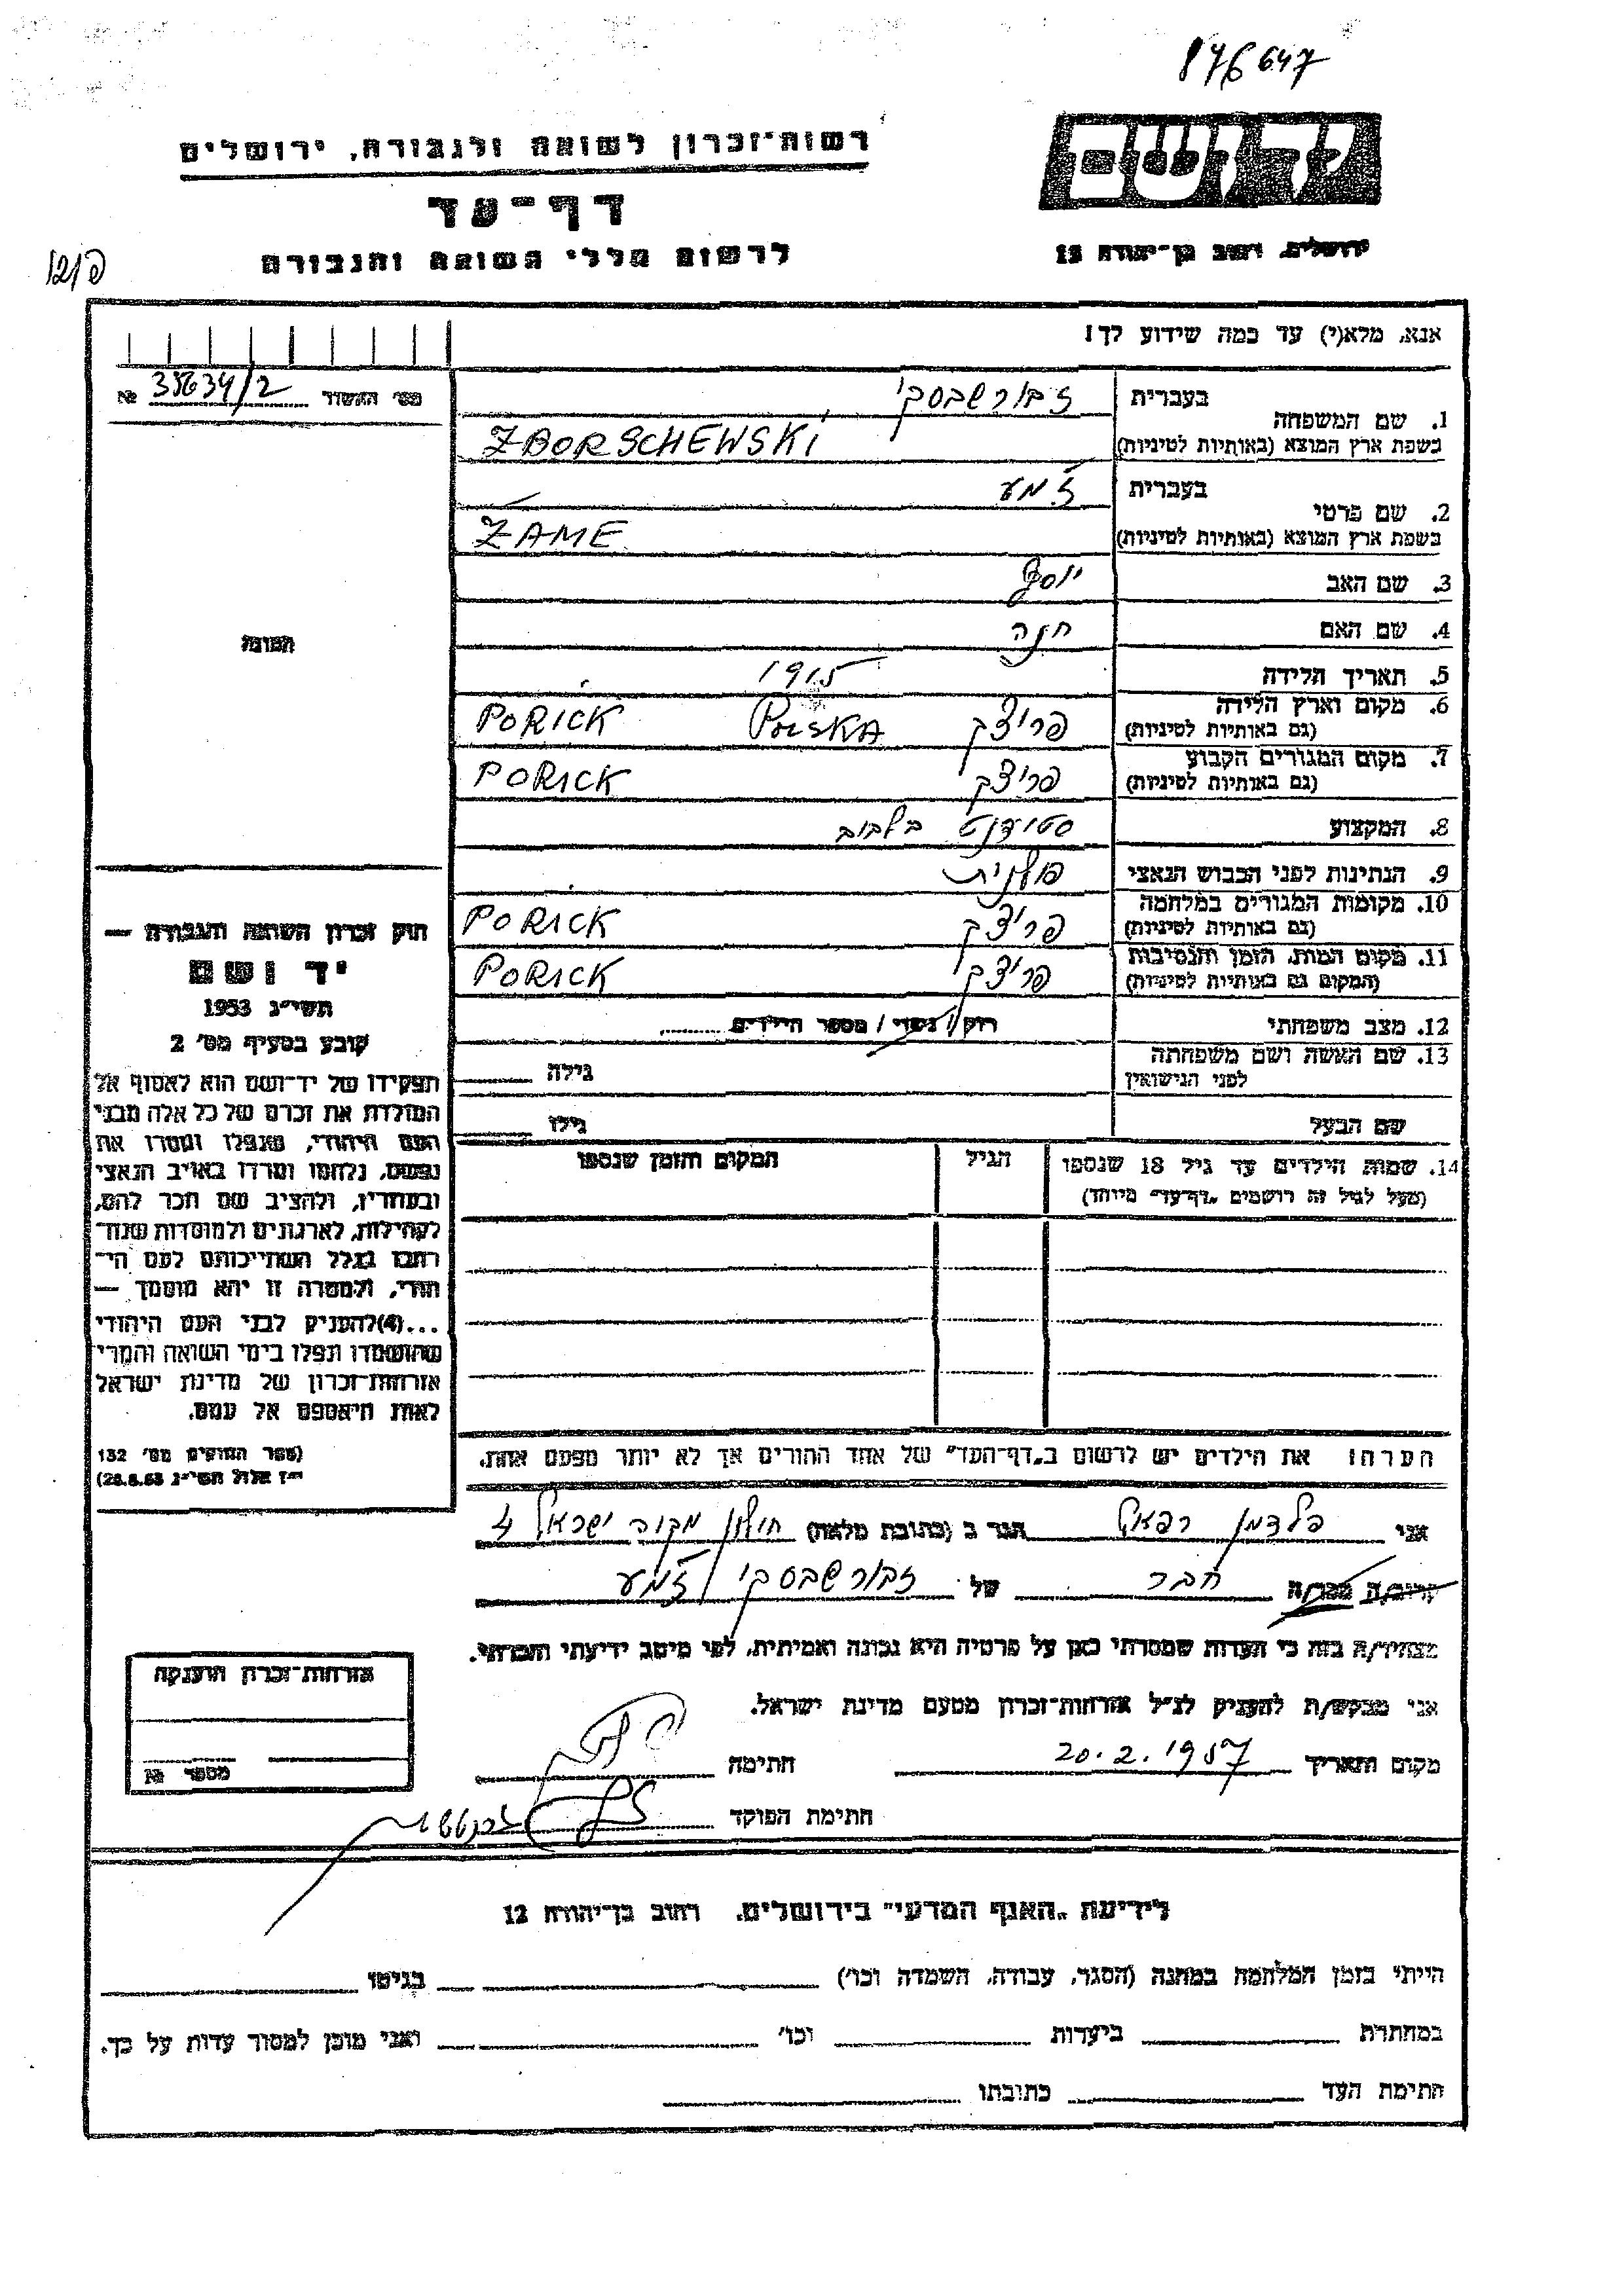 876647
רשות־זכרון לשואה ולגבורה, ירושלים
יד ושם
דף־עד
לרשום חללי השואה והגבורה
ירושלים, רחוב בן־יהודה 12
אנא, מלא(י) עד כמה שידוע לך!
מס׳ האשור 35634/2 №
1. שם המשפחה
בעברית זבורשבסקי
בשפת ארץ המוצא (באותיות לטיניות) ZBORSCHEWSKI
2. שם פרטי
בעברית זמע
בשפת ארץ המוצא (באותיות לטיניות) ZAME
3. שם האב יוסף
4. שם האם חנה
התמונה
5. תאריך הלידה 1915
6. מקום וארץ הלידה פריצק POLSKA PORICK
(גם באותיות לטיניות)
7. מקום המגורים הקבוע פריצק PORICK
(גם באותיות לטיניות)
8. המקצוע סטודנט בלבוב
9. הנתינות לפני הכבוש הנאצי פולנית
10. מקומות המגורים במלחמה פריצק PORICK
(גם באותיות לטיניות)
11. מקום המות, הזמן והנסיבות פריצק PORICK
(המקום גם באותיות לטיניות)
12. מצב משפחתי רווק/ נשוי / מספר הילדים
13. שם האשה ושם משפחתה
לפני הנישואין גילה
שם הבעל גילו
14. שמות הילדים עד גיל 18 שנספו הגיל המקום והזמן שנספו
(מעל לגיל זה רושמים „דף־עד״ מיוחד)
הערה: את הילדים יש לרשום ב„דף־העד״ של אחד ההורים אך לא יותר מפעם אחת.
חוק זכרון השואה והגבורה —
יד ושם
תשי״ג 1953
קובע בסעיף מס׳ 2
תפקידו של יד־ושם הוא לאסוף אל
המולדת את זכרם של כל אלה מבני
העם היהודי, שנפלו ומסרו את
נפשם, נלחמו ומרדו באויב הנאצי
ובעוזריו, ולהציב שם וזכר להם,
לקהילות, לארגונים ולמוסדות שנח־
רבו בגלל השתייכותם לעם הי־
הודי, ולמטרה זו יהא מוסמך —
...(4)להעניק לבני העם היהודי
שהושמדו ונפלו בימי השואה והמרי
אזרחות־זכרון של מדינת ישראל
לאות היאספם אל עמם.
(ספר החוקים מס׳ 132
י״ז אלול תשי״ג 28.8.53)
אני פלדמן רפאל הגר ב (כתובת מלאה) חולון מקוה ישראל 4
קרוב/ה מכר/ה חבר של זבורשבסקי זמע
מצהיר/ה בזה כי העדות שמסרתי כאן על פרטיה היא נכונה ואמיתית, לפי מיטב ידיעתי והכרתי.
אני מבקש/ת להעניק לנ״ל אזרחות־זכרון מטעם מדינת ישראל.
מקום ותאריך 20.2.1957 חתימה
חתימת הפוקד
אזרחות־זכרון הוענקה
מספר №
לידיעת „האגף המדעי״ בירושלים, רחוב בן־יהודה 12
הייתי בזמן המלחמה במחנה (הסגר, עבודה, השמדה וכו׳) בגיטו
במחתרת ביערות וכו׳ ואני מוכן למסור עדות על כך.
חתימת העד כתובתו